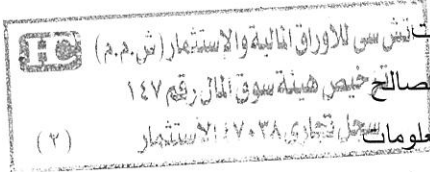 اتش سى للأوراق المالية والإستثمار (ش.م.م)
صالح ترخيص هيئة سوق المال رقم ١٤٧
علومات سجل تجارى ٤٧٠٣٨ الأستثمار
(٢)